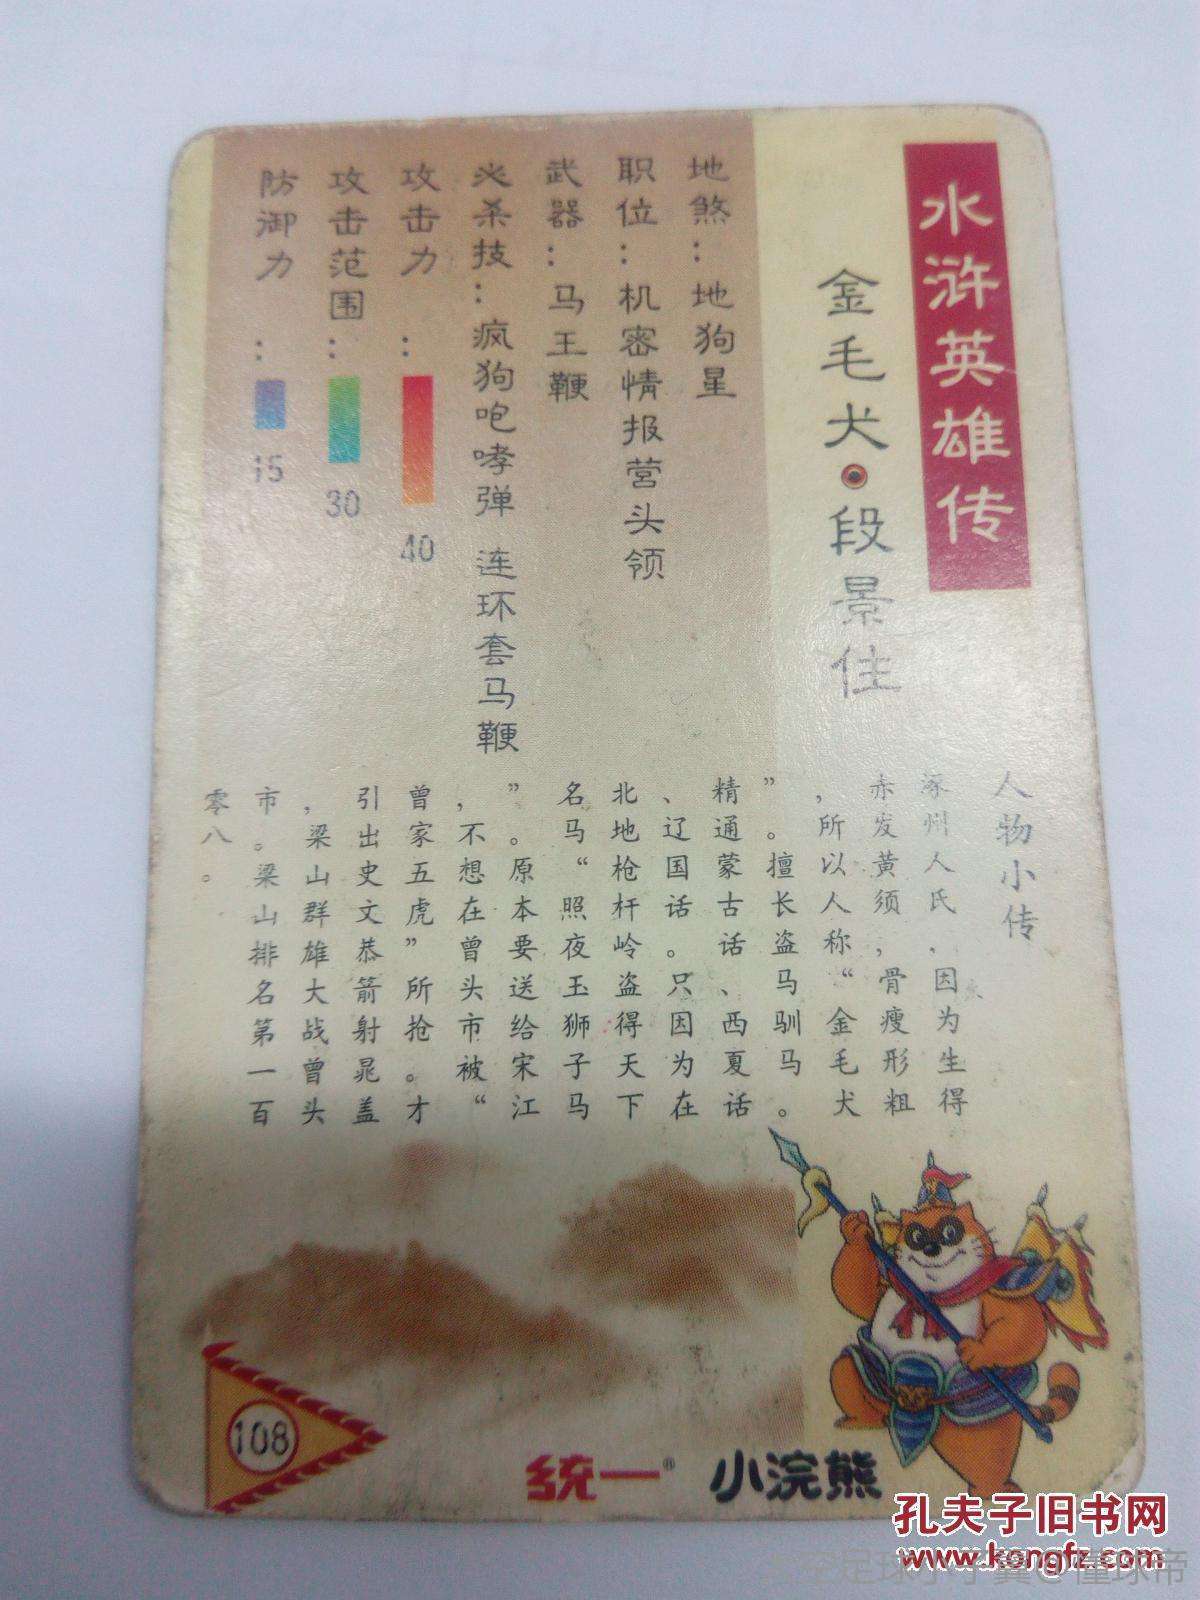 水浒英雄传
金毛犬·段景住
地煞：地狗星
职位：机密情报营头领
武器：马王鞭
必杀技：疯狗咆哮弹 连环套马鞭
攻击力：40
攻击范围：30
防御力：15
人物小传
涿州人氏，因为生得
赤发黄须，骨瘦形粗
，所以人称“金毛犬
”。擅长盗马驯马。
精通蒙古话、西夏话
、辽国话。只因为在
北地枪杆岭盗得天下
名马“照夜玉狮子马
”。原本要送给宋江
，不想在曾头市被“
曾家五虎”所抢。才
引出史文恭箭射晁盖
，梁山群雄大战曾头
市。梁山排名第一百
零八。
108
统一® 小浣熊
孔夫子旧书网
www.kongfz.com